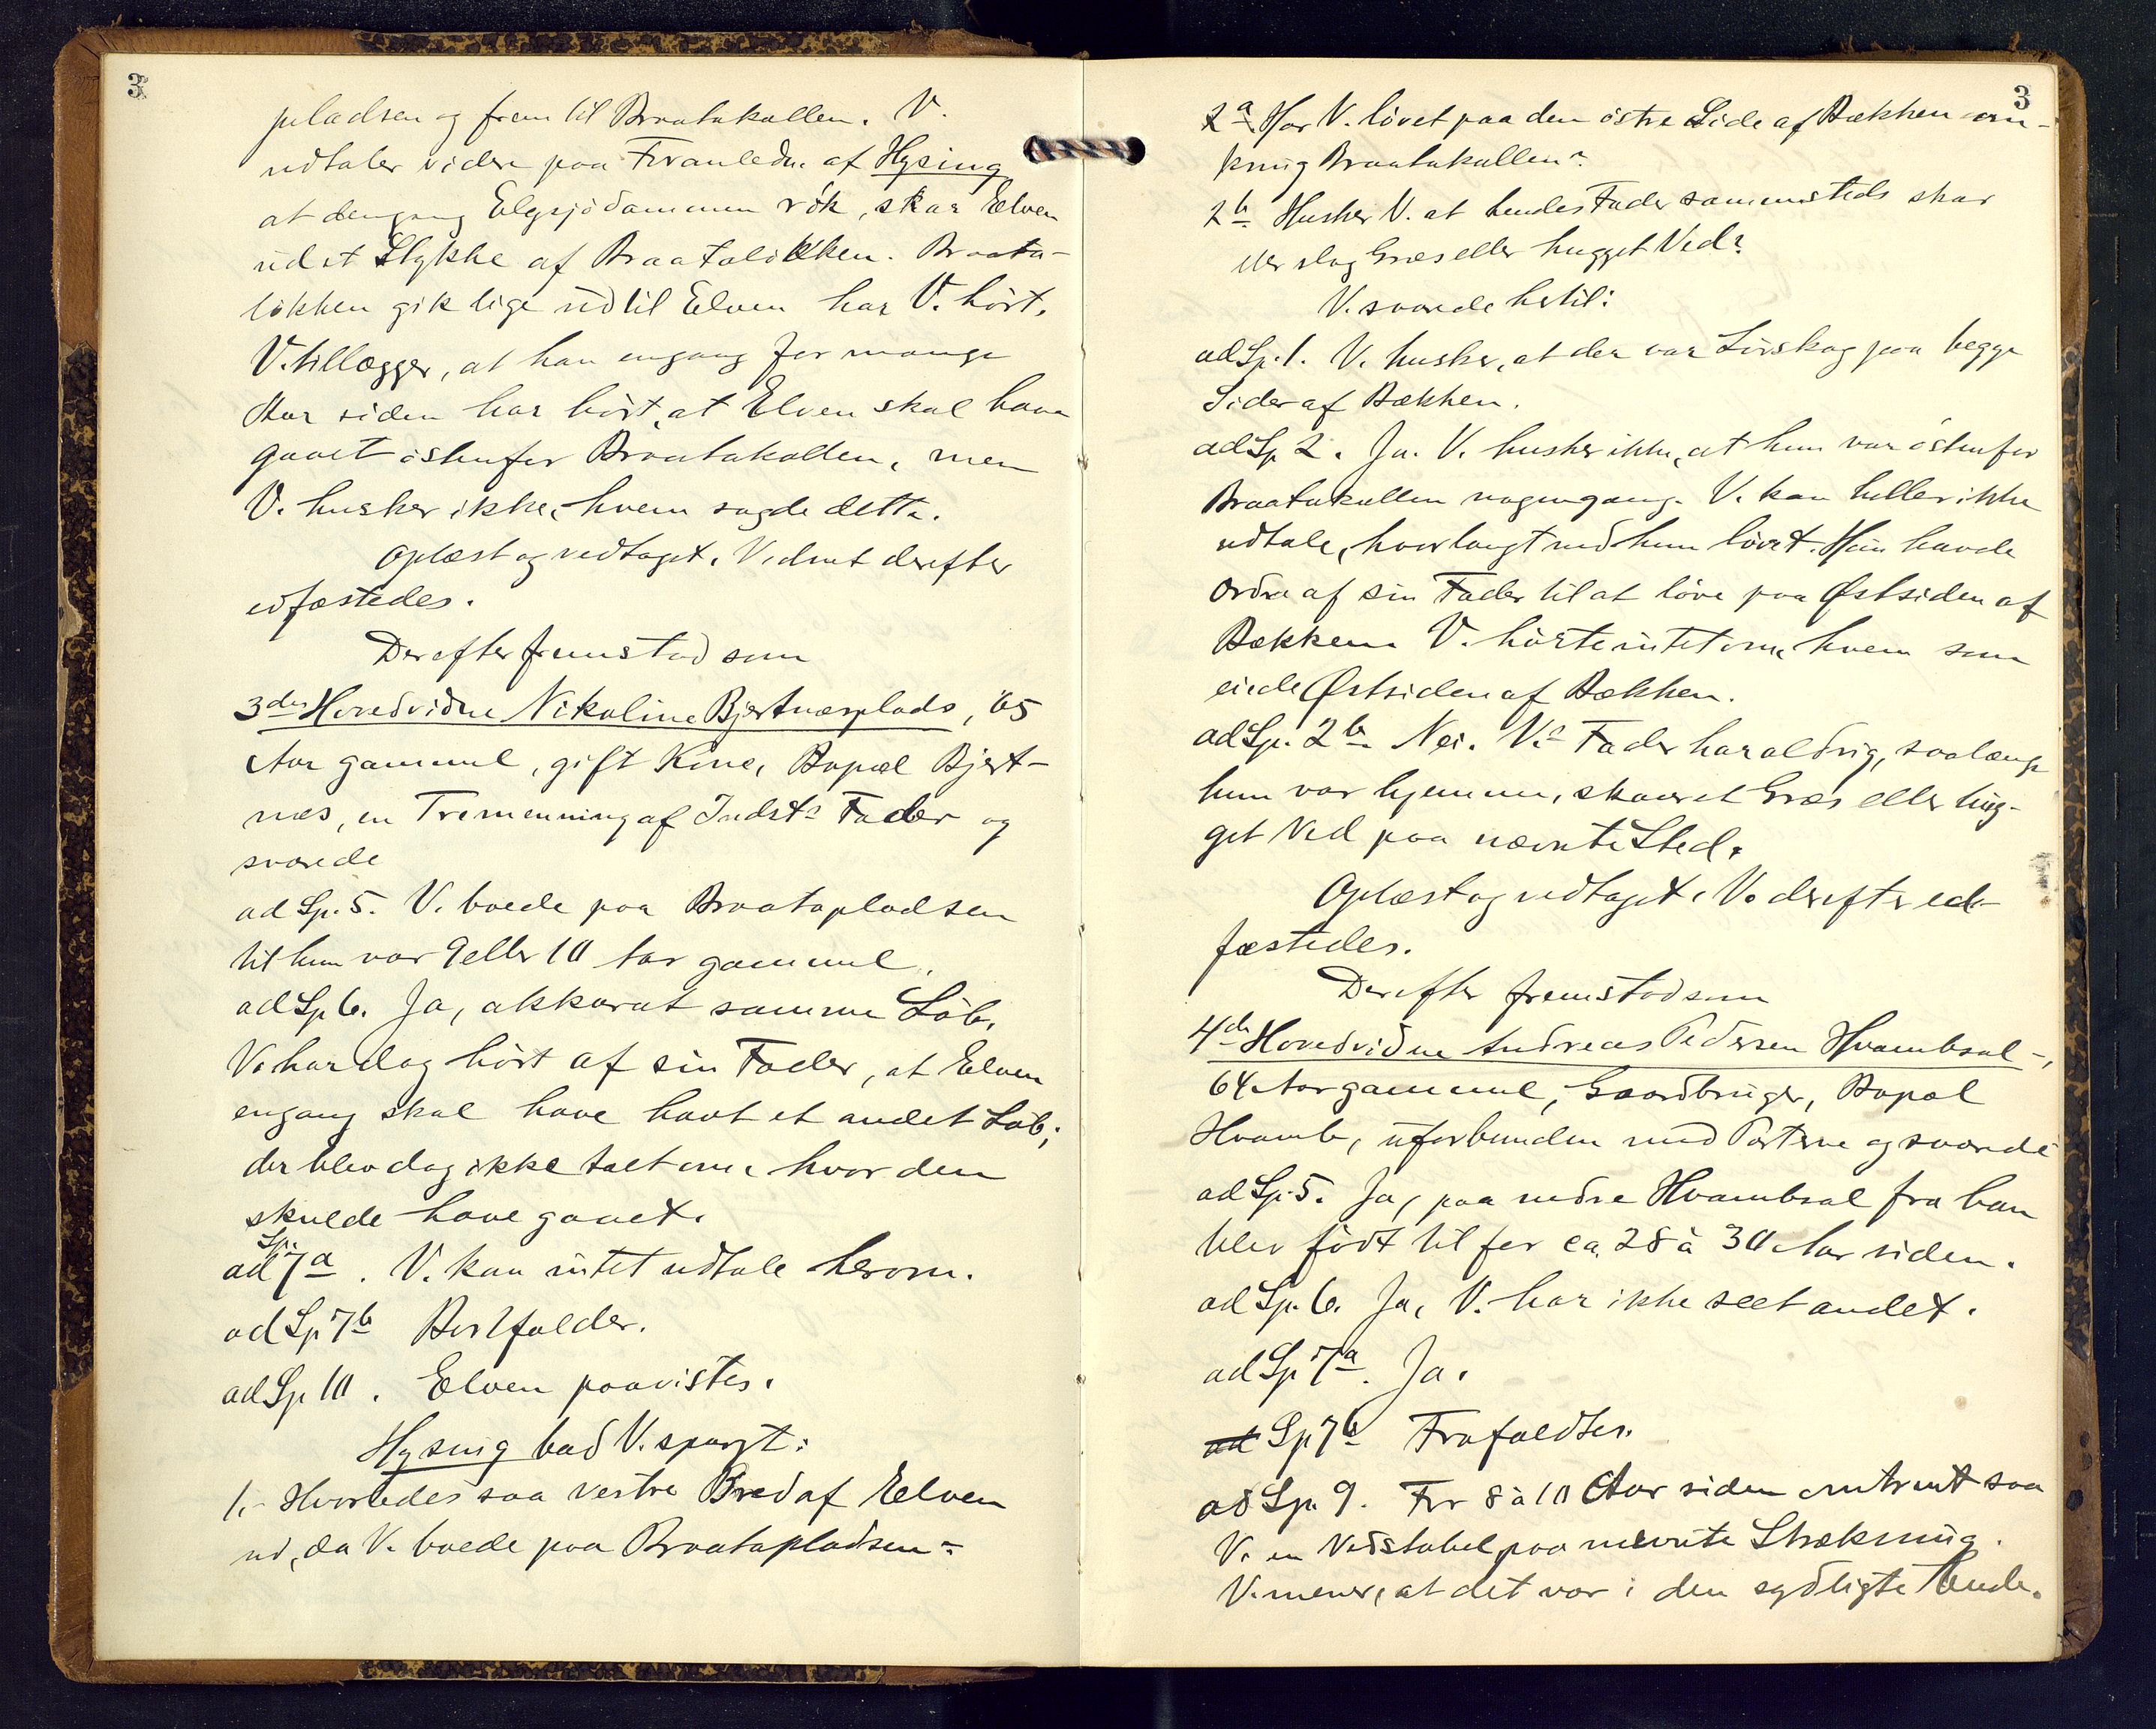 3
pladsen og frem til Braatakollen. V.
udtaler videre paa Foranledn. af Hysing
at dengang Elgsjödammen rök, skar Elven
ud et Stykke af Braatalökken. Braata-
lökken gik lige ud til Elven har V. hört.
V. tillægger, at han engang for mange
Aar siden har hört, at Elven skal have
gaaet östenfor Braatakollen, men
V. husker ikke, hvem sagde dette.
Oplæst og vedtaget. Vidnet derefter
edfæstedes.
Derefter fremstod som
3die Hovedvidne Nikoline Bjertnæsplads, 65
Aar gammel, gift Kone, Bopæl Bjert-
næs, en Tremenning af Indsts Fader og
svarede
ad Sp. 5. V. boede paa Braatapladsen
til hun var 9 eller 10 Aar gammel.
ad Sp. 6. Ja, akkurat samme Löb.
V. har dog hört af sin Fader, at Elven
engang skal have havt et andet Löb;
der blev dog ikke talt om, hvor den
skulde have gaaet.
ad Sp. 7a. V. kan intet udtale herom.
ad Sp 7b Bortfalder.
ad Sp 10. Elven paavistes.
Hysing bad V. spurgt:
1. Hvorledes saa vestre Bred af Elven
ud, da V. boede paa Braatapladsen?
3
2a Har V. lövet paa den östre Side af Bækken om-
kring Braatakollen?
2b Husker V. at hendes Fader sammesteds skar
eller slog Græs eller hugget Ved?
V. svarede hertil:
ad Sp. 1. V. husker, at der var Lövskog paa begge
Sider af Bækken.
ad Sp 2. Ja. V. husker ikke, at hun var östenfor
Braatakollen nogengang. V. kan heller ikke
udtale, hvor langt ned hun lövet. Hun havde
Ordre af sin Fader til at löve paa Østsiden af
Bækken. V. hörte intet om, hvem som
eiede Østsiden af Bækken.
ad Sp. 2b. Nei. V.s Fader har aldrig, saalænge
hun var hjemme, skaaret Græs eller hug-
get Ved paa nævnte Sted.
Oplæst og vedtaget. V. derefter ed-
fæstedes.
Derefter fremstod som
4de Hovedvidne Andreas Pedersen Hvambsal-,
64 Aar gammel, Gaardbruger, Bopæl
Hvamb, uforbunden med Parterne og svarede
ad Sp. 5. Ja, paa nedre Hvambsal fra han
blev födt til for ca. 28 à 30 Aar siden.
ad Sp. 6. Ja, V. har ikke seet andet.
ad Sp 7a. Ja.
ad Sp 7b Frafaldtes.
ad Sp. 9. For 8 à 10 Aar siden omtrent saa
V. en Vedstabel paa nævnte Strækning.
V. mener, at det var i den sydligste Ende.